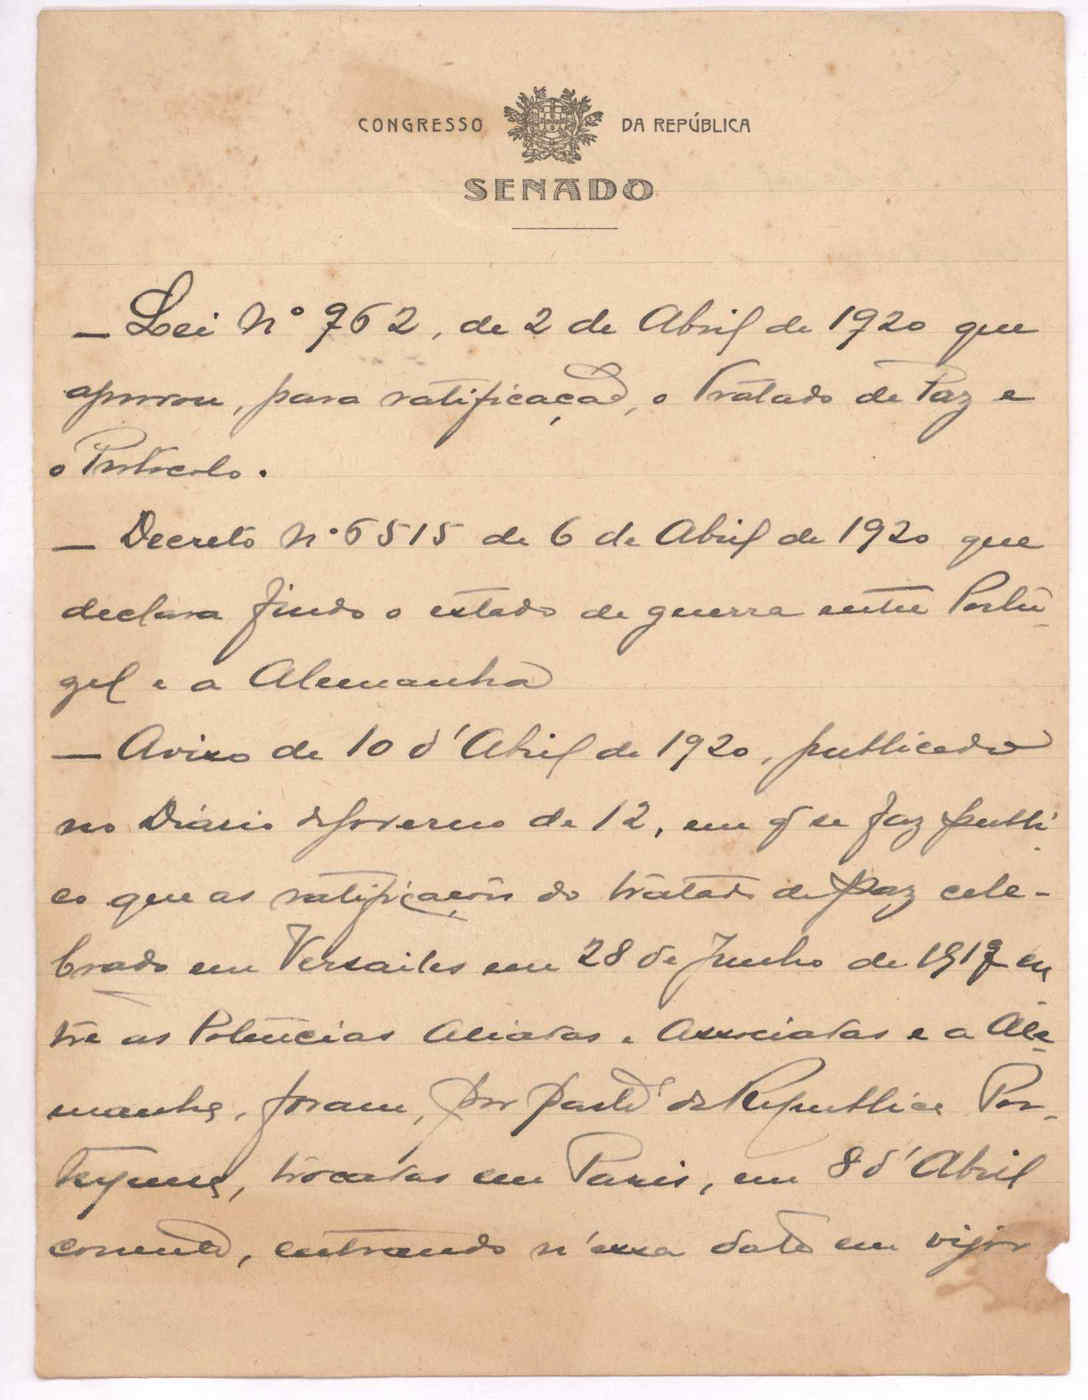 CONGRESSO DA REPÚBLICA
SENADO
— Lei Nº 962, de 2 de Abril de 1920 que
aprovou, para ratificação, o Tratado de Paz e
o Protocolo.
— Decreto nº 6515 de 6 de Abril de 1920 que
declara findo o estado de guerra entre Portu-
gal e a Alemanha
— Aviso de 10 d'Abril de 1920, publicado
no Diário do Governo de 12, em q se faz publi-
co que as ratificações do tratado de paz cele-
brado em Versailes em 28 de Junho de 1919 en
tre as Potências Aliadas e Associadas e a Ale-
manha, foram, por parte da Republica Por-
tuguesa, trocadas em Paris, em 8 d'Abril
corrente, entrando n'essa data em vigor